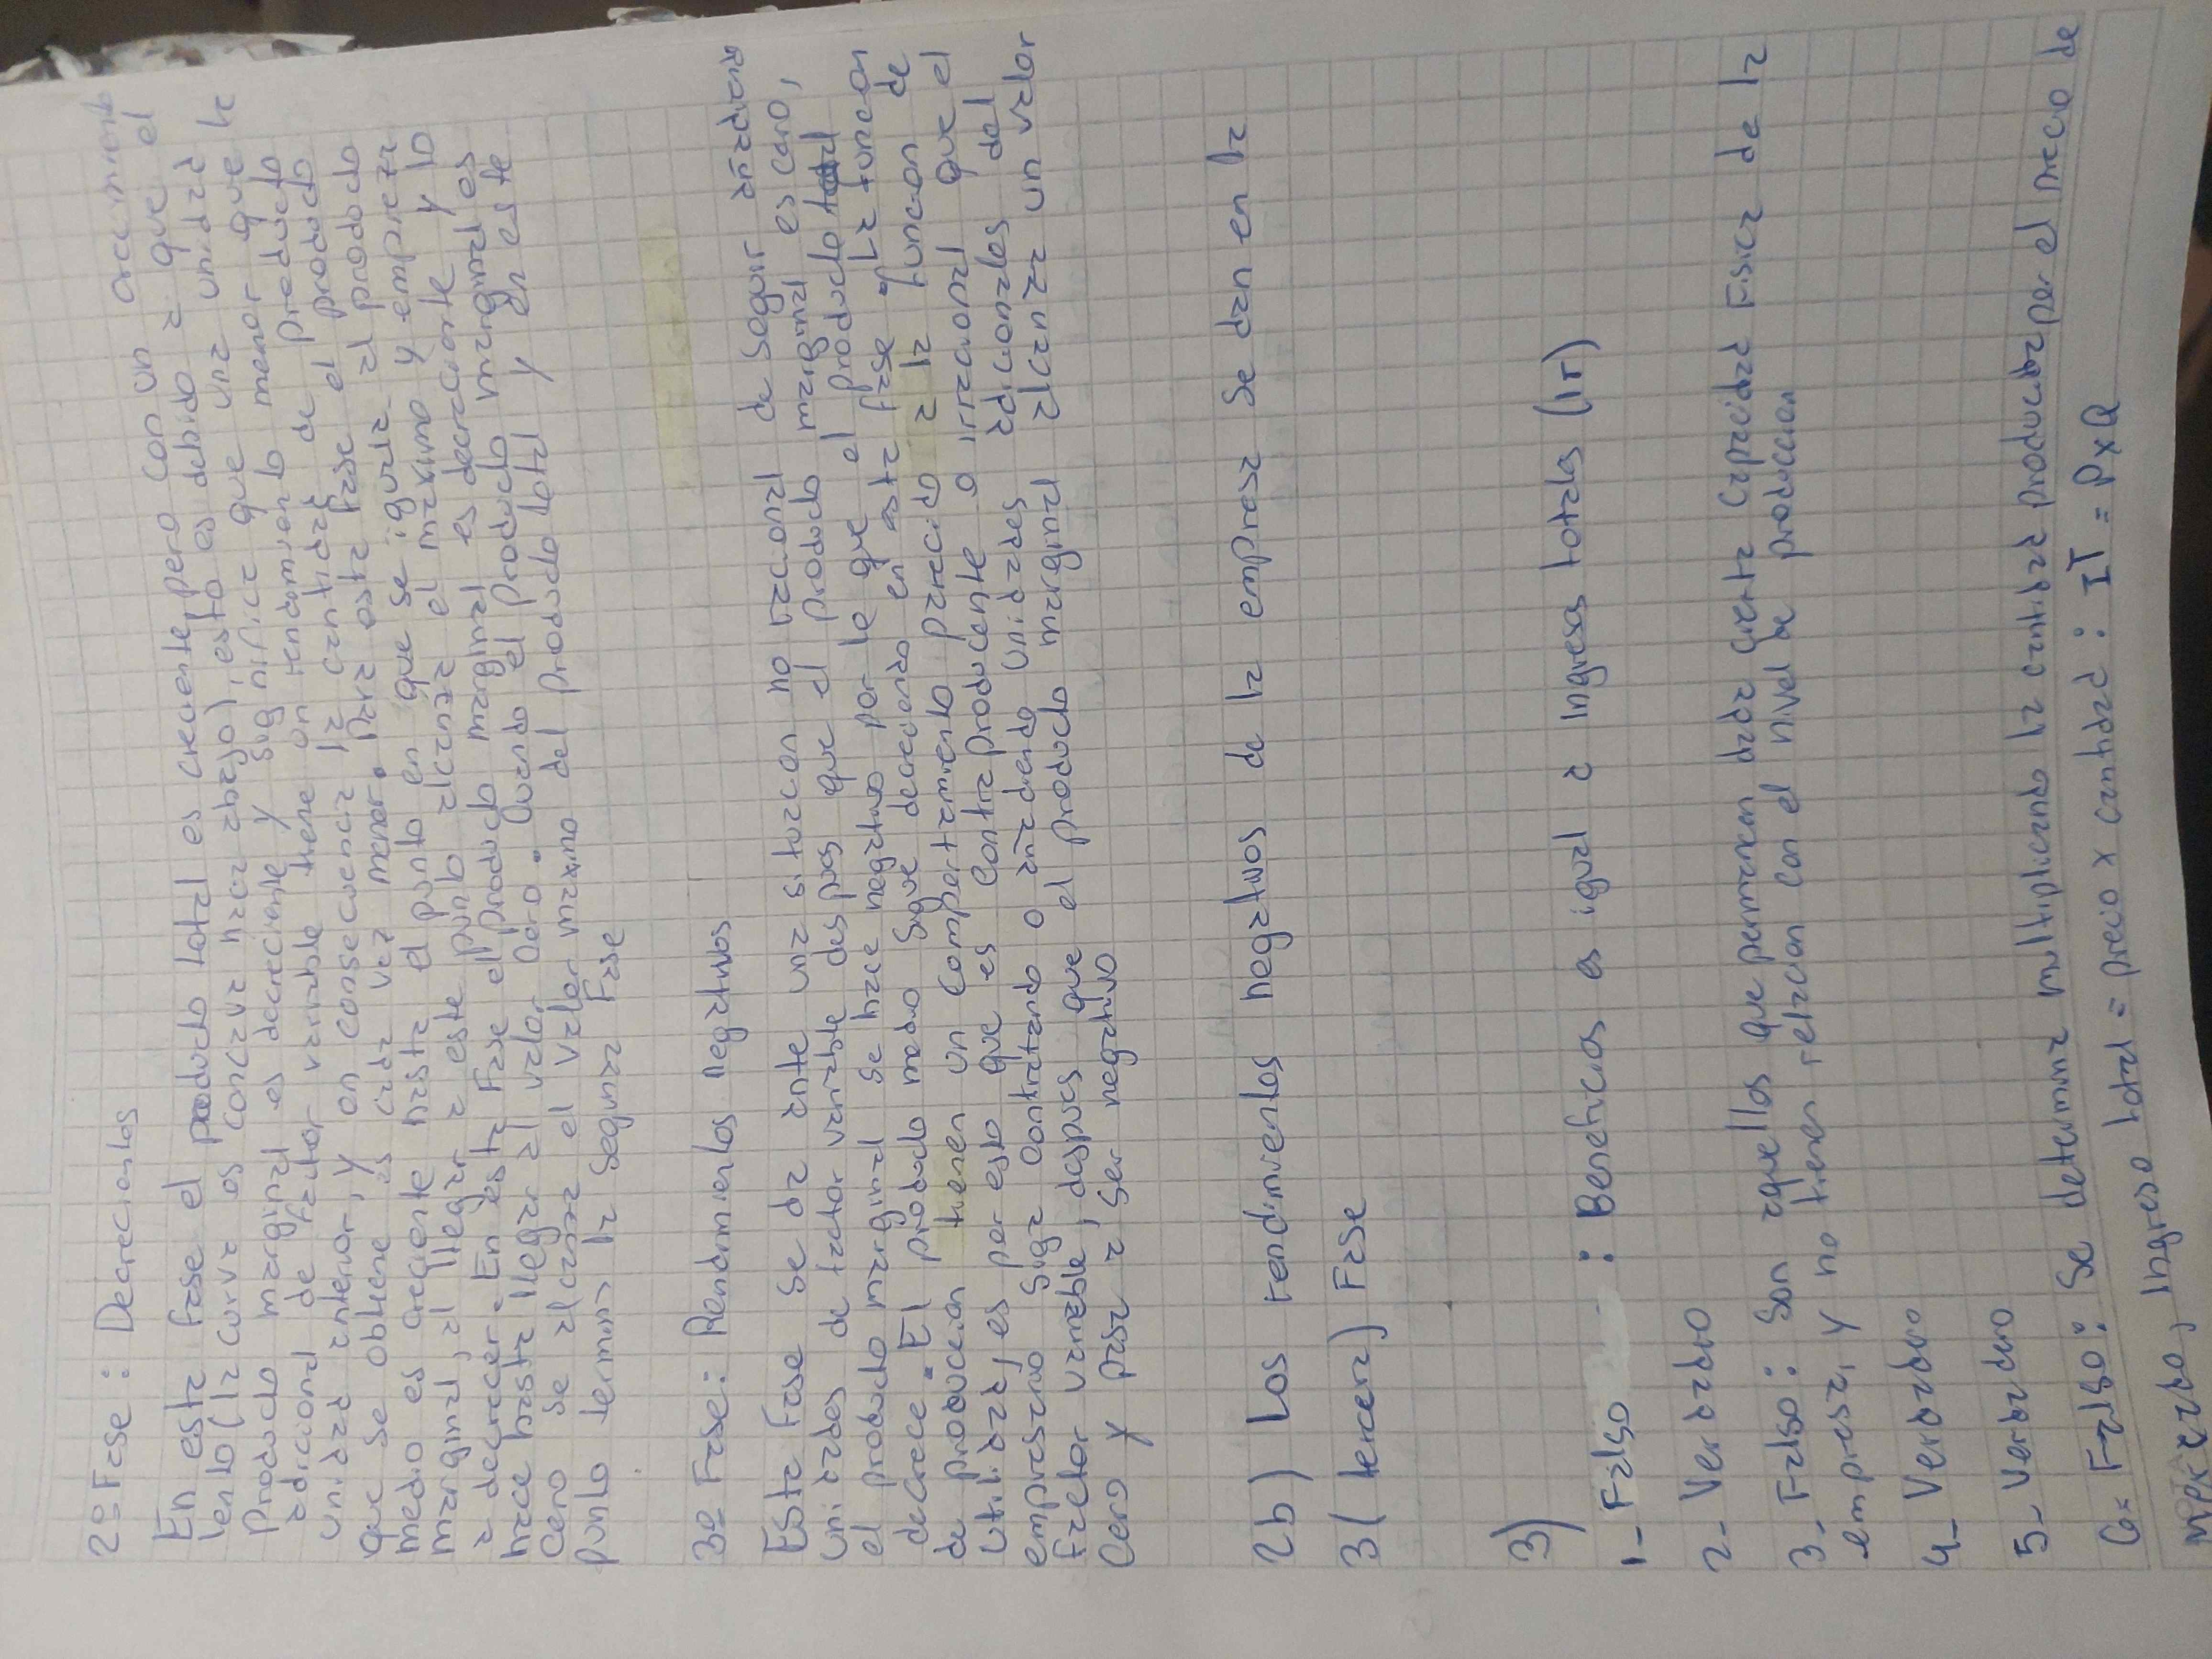 2º Fase: Decrecientes
En esta fase el producto total es creciente, pero con un crecimiento
lento (la curva es concava hacia abajo), esto es debido a que el
producto marginal es decreciente y significa que una unidad
adicional de factor variable tiene un rendimiento menor que la
unidad anterior, y en consecuencia la cantidad de producto
que se obtiene es cada vez menor. Para esta fase el producto
medio es creciente hasta el punto en que se iguala al producto
marginal, al llegar a este punto alcanza el maximo y empieza
a decrecer. En esta Fase el producto marginal es decreciente y lo
hace hasta llegar al valor cero. Cuando el producto marginal es
cero se alcanza el valor maximo del producto total y en este
punto termina la segunda Fase
3º Fase: Rendimientos negativos
Esta Fase se da ante una situacion no racional de seguir añadiendo
unidades de factor variable despues que el producto marginal es cero,
el producto marginal se hace negativo por lo que el producto total
decrece. El producto medio sigue decreciendo en esta fase y la funcion
de produccion tienen un compertamiento parecido a la funcion de
utilidad, es por esto que es contraproducente o irracional que el
empresario siga contratando o añadiendo unidades adicionales del
factor variable, despues que el producto marginal alcanza un valor
cero y pasa a ser negativo
2b) Los rendimientos negativos de la empresa se dan en la
3 (tercera) Fase
3)
1- Falso : Beneficios es igual a ingresos totales (IT)
2- Verdadero
3- Falso: Son aquellos que permanecen dada cierta capacidad Fisica de la
empresa, y no tienen relacion con el nivel de produccion
4- Verdadero
5- Verdadero
6- Falso: Se determina multiplicando la cantidad producida por el precio de
mercado, Ingreso total = precio x cantidad : IT = P x Q